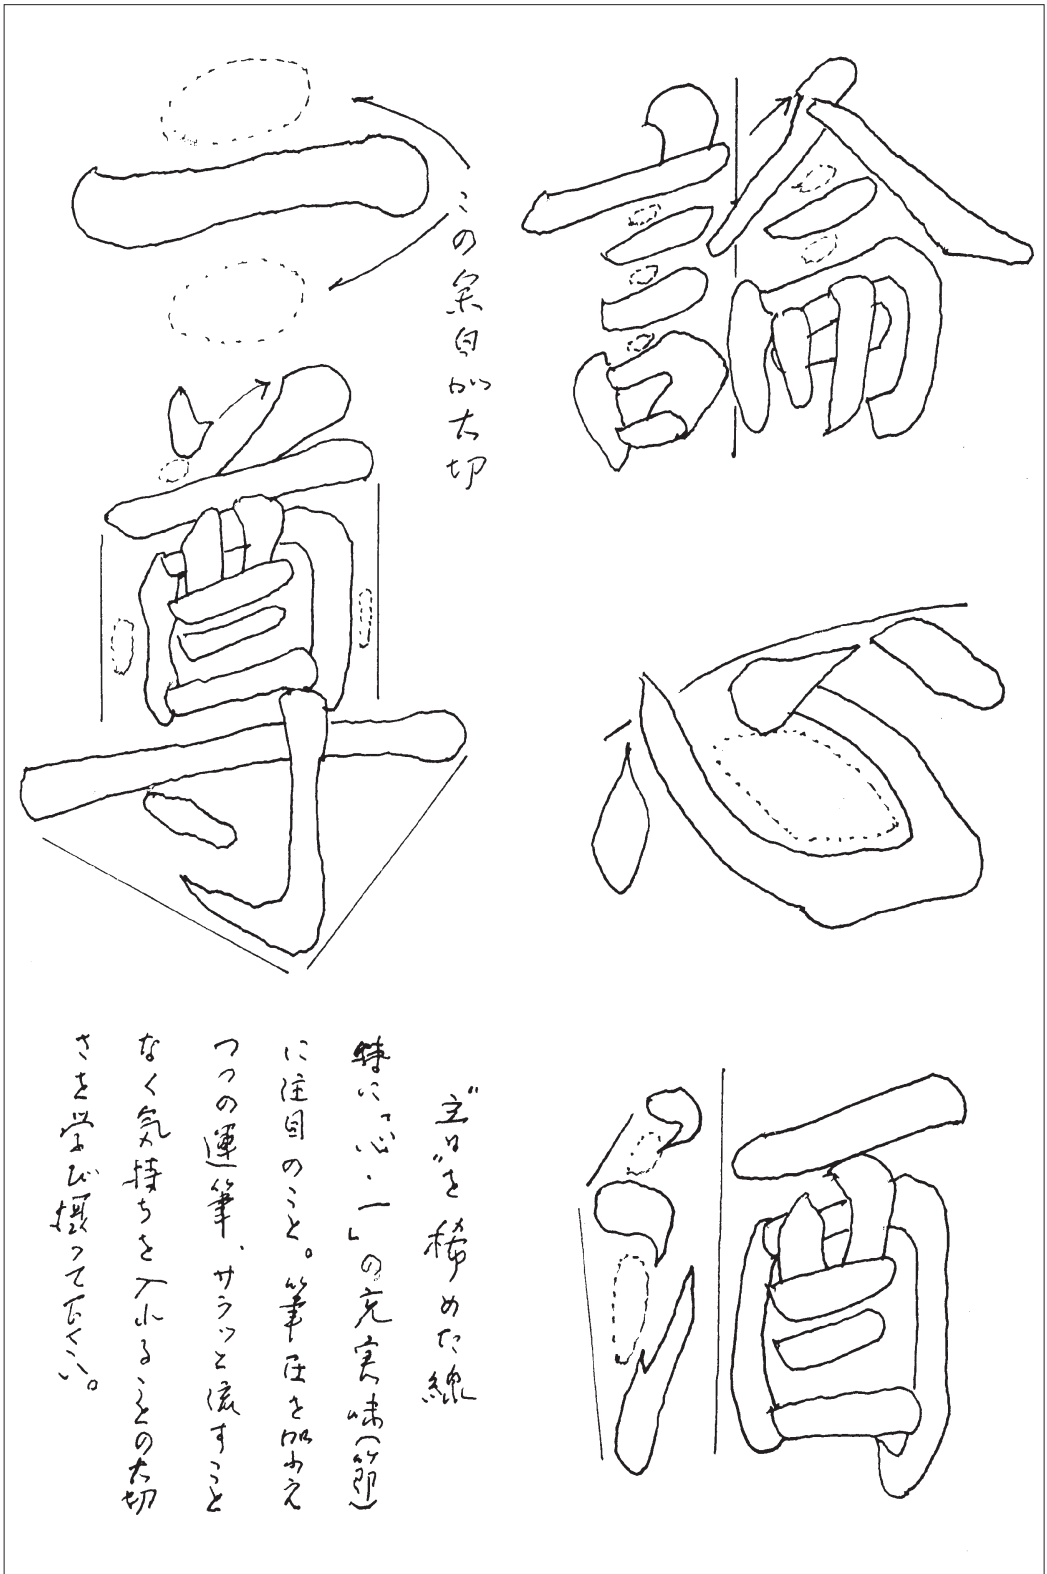 論
心
酒
一
この余白が大切
尊
“意”を秘めた線
特に「心・一」の充実味（節）
に注目のこと。筆圧を加え
つつの運筆、サラッと流すこと
なく気持ちを入れることの大切
さを学び摂って下さい。